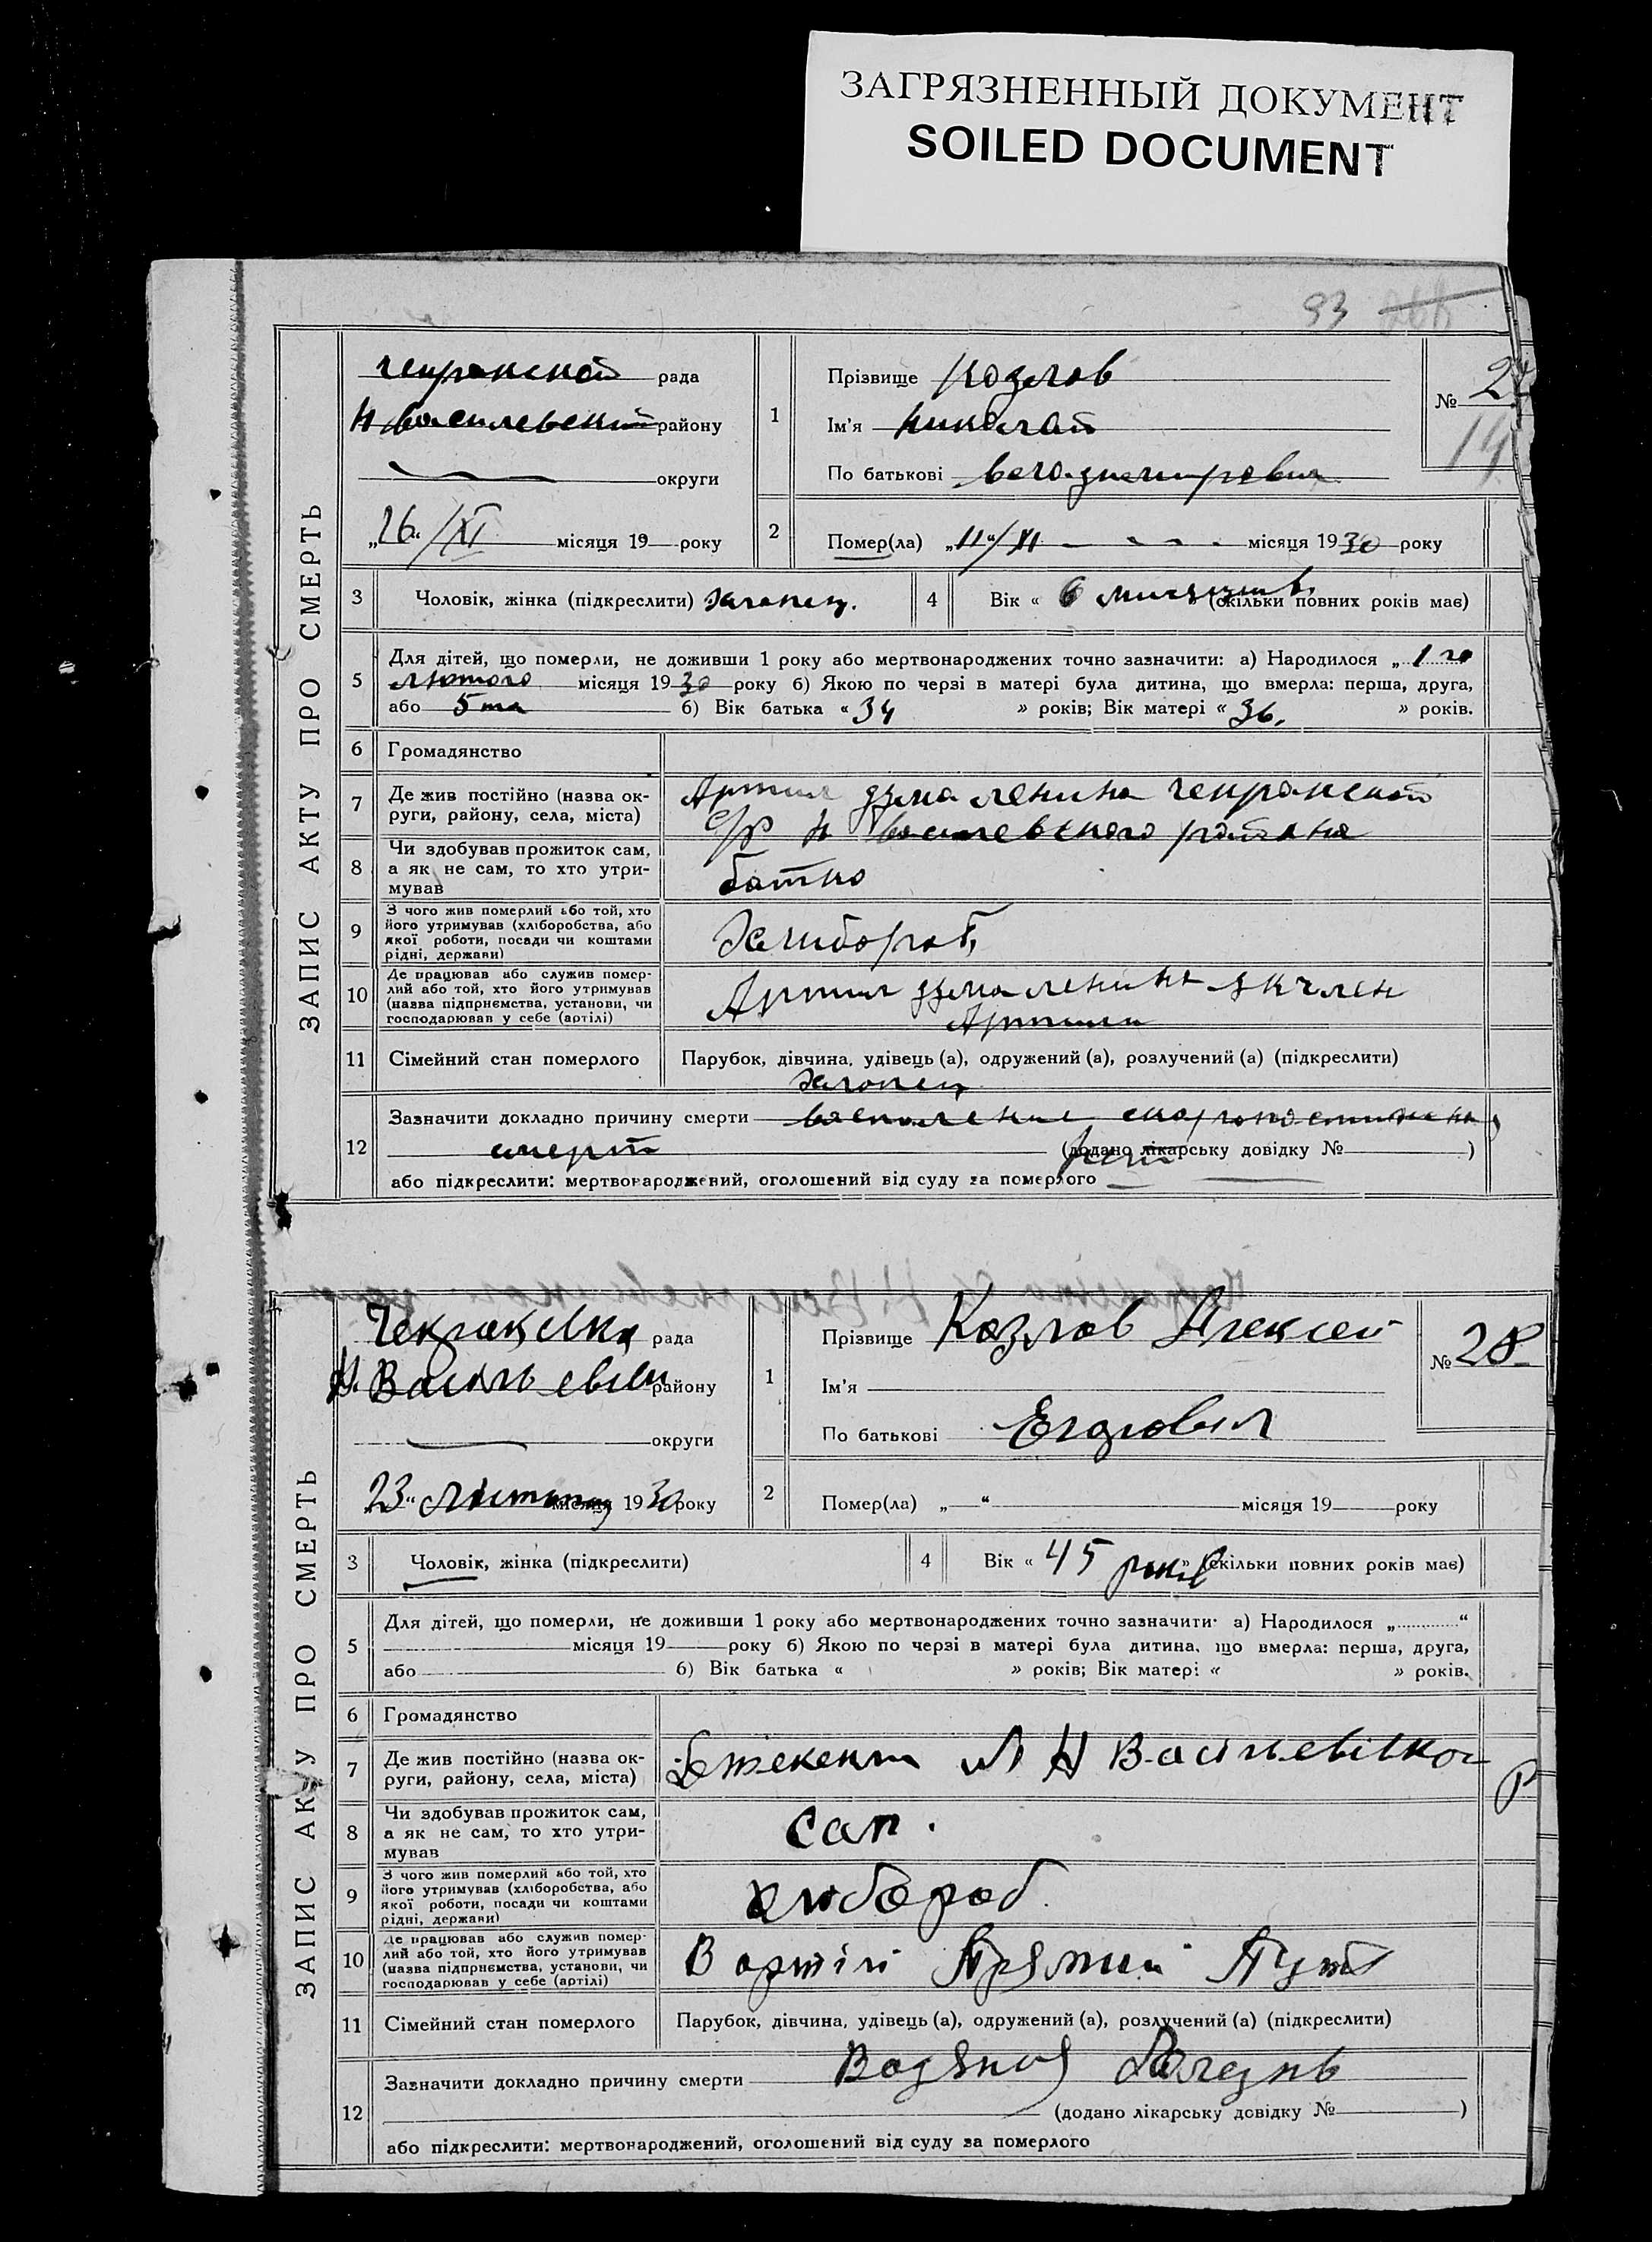 ЗАГРЯЗНЕННЫЙ ДОКУМЕНТ
SOILED DOCUMENT
93
ЗАПИС АКТУ ПРО СМЕРТЬ
рада
району
округи
„26“/XI місяця 19 року
1
Прізвище Козлов
Ім'я Николай
По батькові
№ 27
14
2
Помер(ла) „11“/XI місяця 1930 року
3 Чоловік, жінка (підкреслити) хлопец.
4 Вік « 6 (скільки повних років має)
5 Для дітей, що померли, не доживши 1 року або мертвонароджених точно зазначити: а) Народилося „ 1 го
лютого місяця 1930 року б) Якою по черзі в матері була дитина, що вмерла: перша, друга,
або 5 та б) Вік батька « 34 » років; Вік матері « 36. » років.
6 Громадянство
7 Де жив постійно (назва округи, району, села, міста) Артил ленина
с/р Н района
8 Чи здобував прожиток сам, а як не сам, то хто утримував батко
9 З чого жив померлий або той, хто його утримував (хліборобства, або якої роботи, посади чи коштами рідні, держави) Хлибороб
10 Де працював або служив померлий або той, хто його утримував (назва підприємства, установи, чи господарював у себе (артілі) Артил ленина член
Артили
11 Сімейний стан померлого Парубок, дівчина, удівець (а), одружений (а), розлучений (а) (підкреслити)
хлопец
12 Зазначити докладно причину смерти
смерт (додано лікарську довідку № )
або підкреслити: мертвонароджений, оголошений від суду за померлого
ЗАПИС АКТУ ПРО СМЕРТЬ
рада
Н. району
округи
23“ місяця 1930 року
1
Прізвище Козлов Алексей
Ім'я
По батькові
№ 28
2
Помер(ла) „ “ місяця 19 року
3 Чоловік, жінка (підкреслити)
4 Вік « 45 років » (скільки повних років має)
5 Для дітей, що померли, не доживши 1 року або мертвонароджених точно зазначити: а) Народилося „ “
місяця 19 року б) Якою по черзі в матері була дитина, що вмерла: перша, друга,
або б) Вік батька « » років; Вік матері « » років.
6 Громадянство
7 Де жив постійно (назва округи, району, села, міста) Н Васильевіско
Р
8 Чи здобував прожиток сам, а як не сам, то хто утримував сам.
9 З чого жив померлий або той, хто його утримував (хліборобства, або якої роботи, посади чи коштами рідні, держави) хлібороб
10 Де працював або служив померлий або той, хто його утримував (назва підприємства, установи, чи господарював у себе (артілі) В артілі Прямий Путь
11 Сімейний стан померлого Парубок, дівчина, удівець (а), одружений (а), розлучений (а) (підкреслити)
12 Зазначити докладно причину смерти
(додано лікарську довідку № )
або підкреслити: мертвонароджений, оголошений від суду за померлого